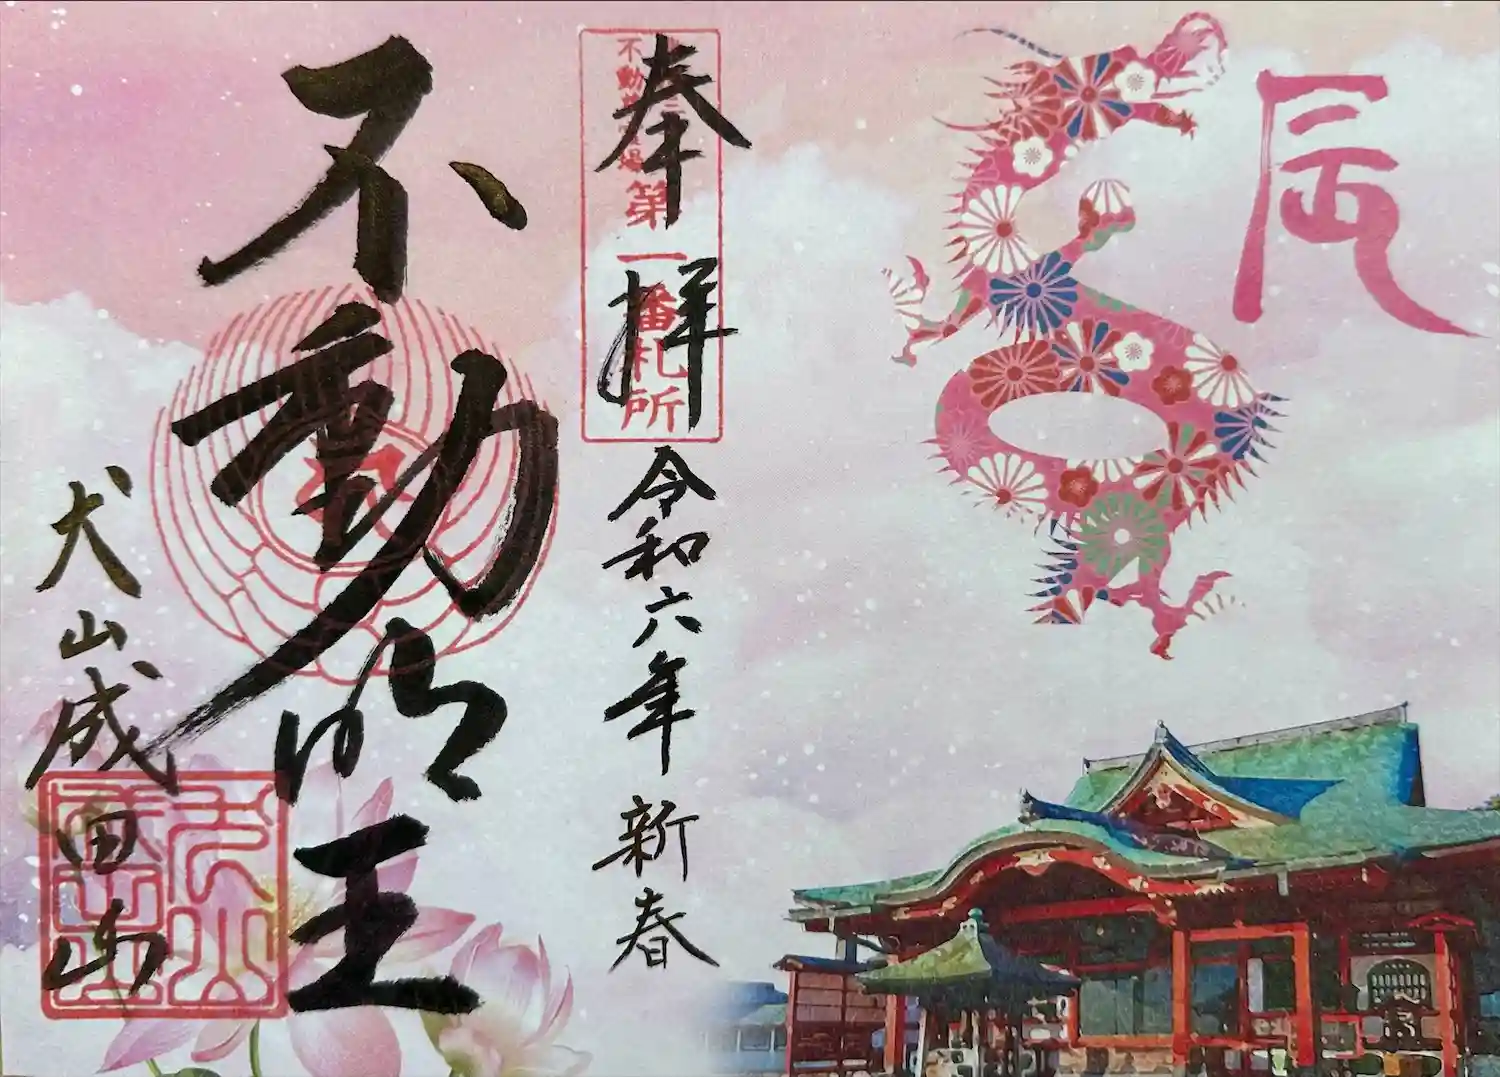 辰
奉拝
第一番札所
令和六年 新春
不動明王
犬山成田山